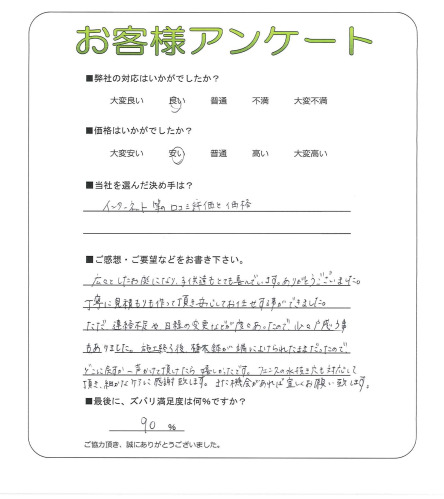 お客様アンケート
■弊社の対応はいかがでしたか?
大変良い 良い 普通 不満 大変不満
■価格はいかがでしたか?
大変安い 安い 普通 高い 大変高い
■当社を選んだ決め手は?
インターネット等の口コミ評価と価格
■ご感想・ご要望などをお書き下さい。
広々としたお庭になり、子供達もとても喜んでいます。ありがとうございました。
丁寧に見積もりも作って頂き安心してお任せする事ができました。
ただ 連絡不足や 日程の変更などが度々あったので 心々 感う事
もありました。施工終了後、植木鉢が端によけられたままだったので、
どこに戻すか一声かけて頂けたら 嬉しかったです。フェンスの水抜き穴も対応して
頂き、細かなケアに感謝致します。また機会があれば宜しくお願い致します。
■最後に、ズバリ満足度は何%ですか?
90 %
ご協力頂き、誠にありがとうございました。